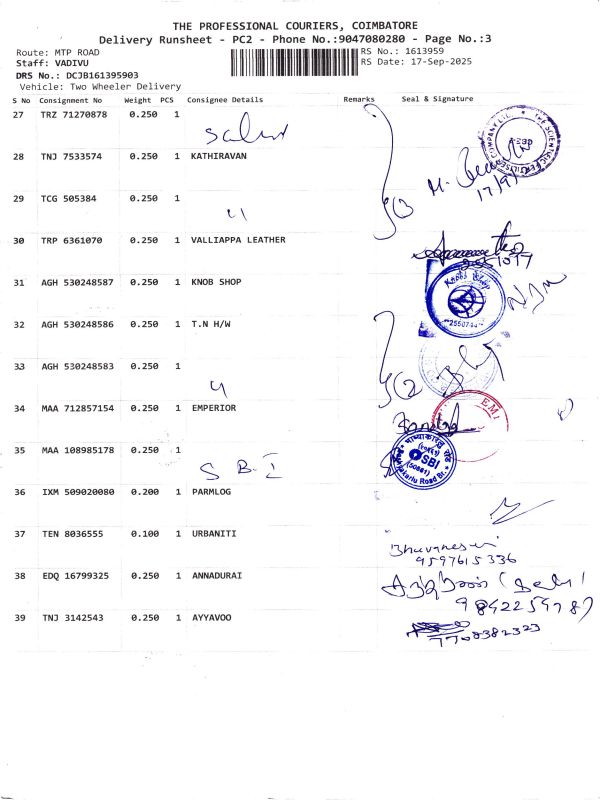 THE PROFESSIONAL COURIERS, COIMBATORE
Delivery Runsheet - PC2 - Phone No.:9047080280 - Page No.:3
Route: MTP ROAD
RS No.: 1613959
Staff: VADIVU
RS Date: 17-Sep-2025
DRS No.: DCJB161395903
Vehicle: Two Wheeler Delivery
S No Consignment No Weight PCS Consignee Details Remarks Seal & Signature
27 TRZ 71270878 0.250 1
28 TNJ 7533574 0.250 1 KATHIRAVAN
17/9/
29 TCG 505384 0.250 1
30 TRP 6361070 0.250 1 VALLIAPPA LEATHER
31 AGH 530248587 0.250 1 KNOB SHOP
32 AGH 530248586 0.250 1 T.N H/W
33 AGH 530248583 0.250 1
34 MAA 712857154 0.250 1 EMPERIOR
EMI
35 MAA 108985178 0.250 1
S B I
SBI
36 IXM 509020080 0.200 1 PARMLOG
37 TEN 8036555 0.100 1 URBANITI
9597615336
38 EDQ 16799325 0.250 1 ANNADURAI
39 TNJ 3142543 0.250 1 AYYAVOO
7708382323